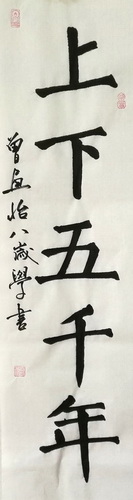 上下五千年
曾宜怡八歲學書